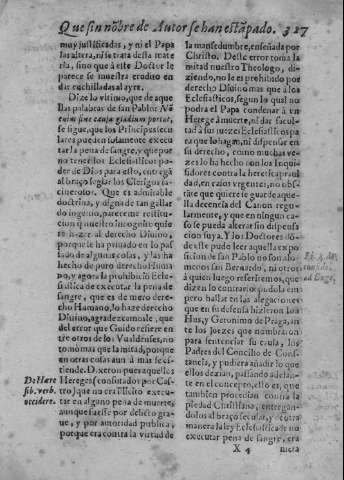 Que sin nõbre de Autor se han estãpado. 327
muy justificadas, y ni el Papa
las altera, ni se trata desta mate
ria, sino que à este Doctor le
parece se muestra erudito en
dar cuchilladas al ayre.
Dize lo vltimo, que de aque
llas palabras de san Pablo: Nõ
enim sine causa gladium portat,
se sigue, que los Principes secu
lares pueden solamente executar
la pena de sangre, y que por
no tener los Eclesiasticos po-
der de Dios para esto, entregã
al braço seglar los Clerigos fa-
cinerosos. Que es admirable
doctrina, y digna de tan galla[r]
do ingenio, pareceme restitu-
cion que nuestro incognito quie
re hazer al derecho Diuino,
porque le ha priuado en lo pas
sado de algunas cosas, y las ha
hecho de puro derecho Huma
no, y agora la prohibiciõ Ecle
siastica de executar la pena de
sangre, que es de mero dere-
cho Humano, lo haze derecho
Diuino, agradezcamosle, que
del error que Guido refiere en
tre otros de los Vualdenses, no
tomò mas que la mitad, porque
en otras cosas aun à mas se es-
tiende. Dixeron pues aquellos
De Hære Hereges (confutados por Cas-
sib. verb. tro) que no era licito execu-
occidere. tar en alguno pena de muerte,
aunque fuesse por delicto gra-
ue, y por autoridad publica,
porque era contra la virtud de
la mansedumbre, enseñada por
Christo. Deste error toma la
mitad nuestro Theologo, di-
ziendo, no le es prohibido por
derecho Diuino mas que à los
Eclesiasticos, segun lo qual no
podra el Papa condenar à vn
Herege à muerte, ni dar facul-
tad à sus juezes Eclesiasticos pa
ra que lo hagan, ni dispensar en
su derecho, como muchas ve-
zes lo ha hecho con los Inqui
sidores contra la heretica praui
dad, en casos vrgentes, no obs-
tãte que quiere se guarde aque-
lla decencia del Canon regu-
larmente, y que en ningun ca-
so se pueda alterar sin dispens
cion suya. Y los Doctores dõ-
de este pudo leer aquella expo
sicion de san Pablo no son alo-
menos san Bernardo, ni otros
à quien luego referiremos, que
dizen lo contrario: pudola em
pero hallar en las alegaciones
que en su defensa hizieron Ioã
Hus, y Geronimo de Praga, an
te los juezes que nombraron
para sentenciar su causa, los
Padres del Concilio de Cons-
tancia, y pudiera añadir lo que
ellos dezian, passando adelan-
te en el concepto, ello es, que
tambien procedian contra la
piedad Christiana, entregan-
dolos al braço seglar, y de otra
manera la ley Eclesiastica de no
executar pena de sangre, era
X 4 mera